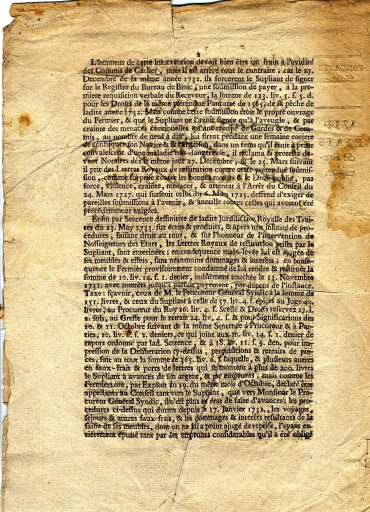 2
L'honneur de cette intervention devoit bien être un frain à l'avidité
des Commis de Carlier, mais il est arrivé tout le contraire : car le 27.
Decembre de la même année 1732. ils forcerent le Supliant de signer
sur le Registre du Bureau de Binic, une soumission de payer, à la pre-
miere requisition verbale du Receveur, la somme de 123. liv. 5. s. 5. d.
pour les Droits de la même pétenduë Pancarte de 1565, de sa pêche de
ladite année 1732. Mais comme cette soumission étoit le propre ouvrage
du Fermier, & que le Supliant ne l'avoit signée qu'à l'aveugle, & par
crainte des menaces continuelles qu'une troupe de Gardes & de Com-
mis, au nombre de neuf à dix, lui firent pendant une semaine entiere
de confiscation Navire & Cargaison, dans un tems qu'il étoit à peine
convalescent d'une maladie très-dangereuse, il reclama & protesta de-
vant Notaires dès le même jour 27. Decembre, & le 25. Mars suivant
il prit des Lettres Royaux de restitution contre cette pretenduë soumis-
sion, comme surprise contre les bonnes mœurs & le Droit public, par
force, violence, crainte, menaces, & attentat à l'Arrêt du Conseil du
24. Mars 1727. qui sursoit celui du 6. May 1725. deffend d'exiger de
pareilles soumissions à l'avenir, & annulle toutes celles qui avoient été
précédemment exigées.
Enfin par Sentence deffinitive de ladite Jurisdiction Royalle des Trai-
tes du 23. May 1735. sur écrits & produits, & après une infinité de pro-
cédures, faisant droit au tout, & sur l'honneur de l'intervention de
Nosseigneurs des Etats, les Lettres Royaux de restitution prises par le
Supliant, sont enterinées : en consequence main-levée lui est jugée de
ses meubles & effets, sans néanmoins dommages & interêts ; en conse-
quence le Fermier provisoirement condamné de lui rendre & restituer la
somme de 10. liv. 14. s. 1. denier, indûment touchée le 13. Novembre
1731. avec interêts jusqu'à parfait payement, par dépens de l'instance.
Taxe : sçavoir, ceux de M. le Procureur Général Syndic à la somme de
151. livres, & ceux du Supliant à celle de 57. liv. 4. s. épices au Juge 40.
livres, au Procureur du Roy 26. liv. 4. s. Scelle & Droits reservez 27. l.
2. sols, au Greffe pour le retrait 24. liv. 4. s. & pour Significations des
10. & 11. Octobre suivant de la même Sentence à Procureur & à Par-
ties, 10. liv. s. 1. deniers, ce qui joint aux 10. liv. 14. s. 1. denier de
raport ordonné par lad. Sentence, & à 18. liv. 11. s. 9. den. pour im-
pression de la Déliberation cy-dessus, perquisitions & retraits de pie-
ces, fait en tout la somme de 365. liv. 6. s. laquelle, & plusieurs autres
en faux-frais & ports de lettres qui se montent à plus de 200. livres
le Supliant a avancées de son argent, & par emprunts ; mais comme les
Fermiers ont, par Exploit du 19. du même mois d'Octobre, declaré être
appellants au Conseil tant vers le Supliant, que vers Monsieur le Pro-
cureur Général Syndic, il n'est plus en état de faire d'avances : les pro-
cedures ci-dessus qui durent depuis le 17. Janvier 1732, les voyages,
séjours & autres faux-frais, & les dommages & interêts resultants de la
saisie de ses meubles, dont on ne lui a point ajugé de reprise, l'ayant en-
tiérement épuisé tant par les emprunts considerables qu'il a été obligé